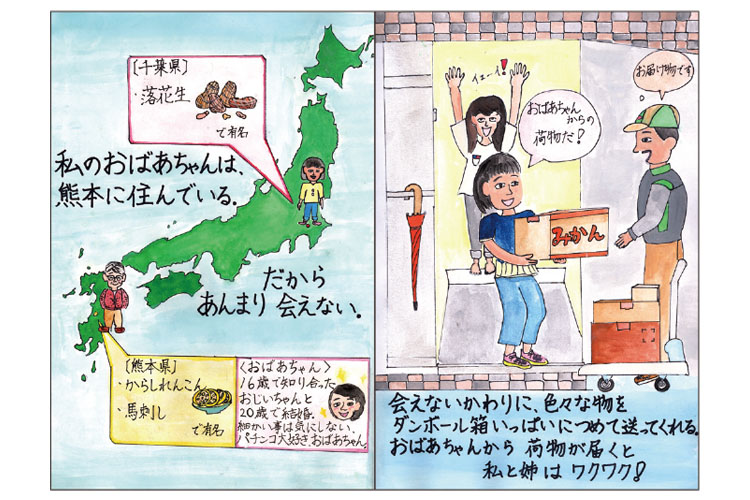 〔千葉県〕
・落花生
で有名
私のおばあちゃんは、
熊本に住んでいる。
だから
あんまり 会えない。
〔熊本県〕
・からしれんこん
・馬刺し
で有名
〈おばあちゃん〉
16歳で知り合った
おじいちゃんと
20歳で結婚。
細かい事は気にしない
パチンコ大好き、おばあちゃん。
イェーイ!
おばあちゃん
からの
荷物だ!
お届け物です
みかん
会えないかわりに、色々な物を
ダンボール箱いっぱいにつめて送ってくれる。
おばあちゃんから 荷物が届くと
私と姉は ワクワク!